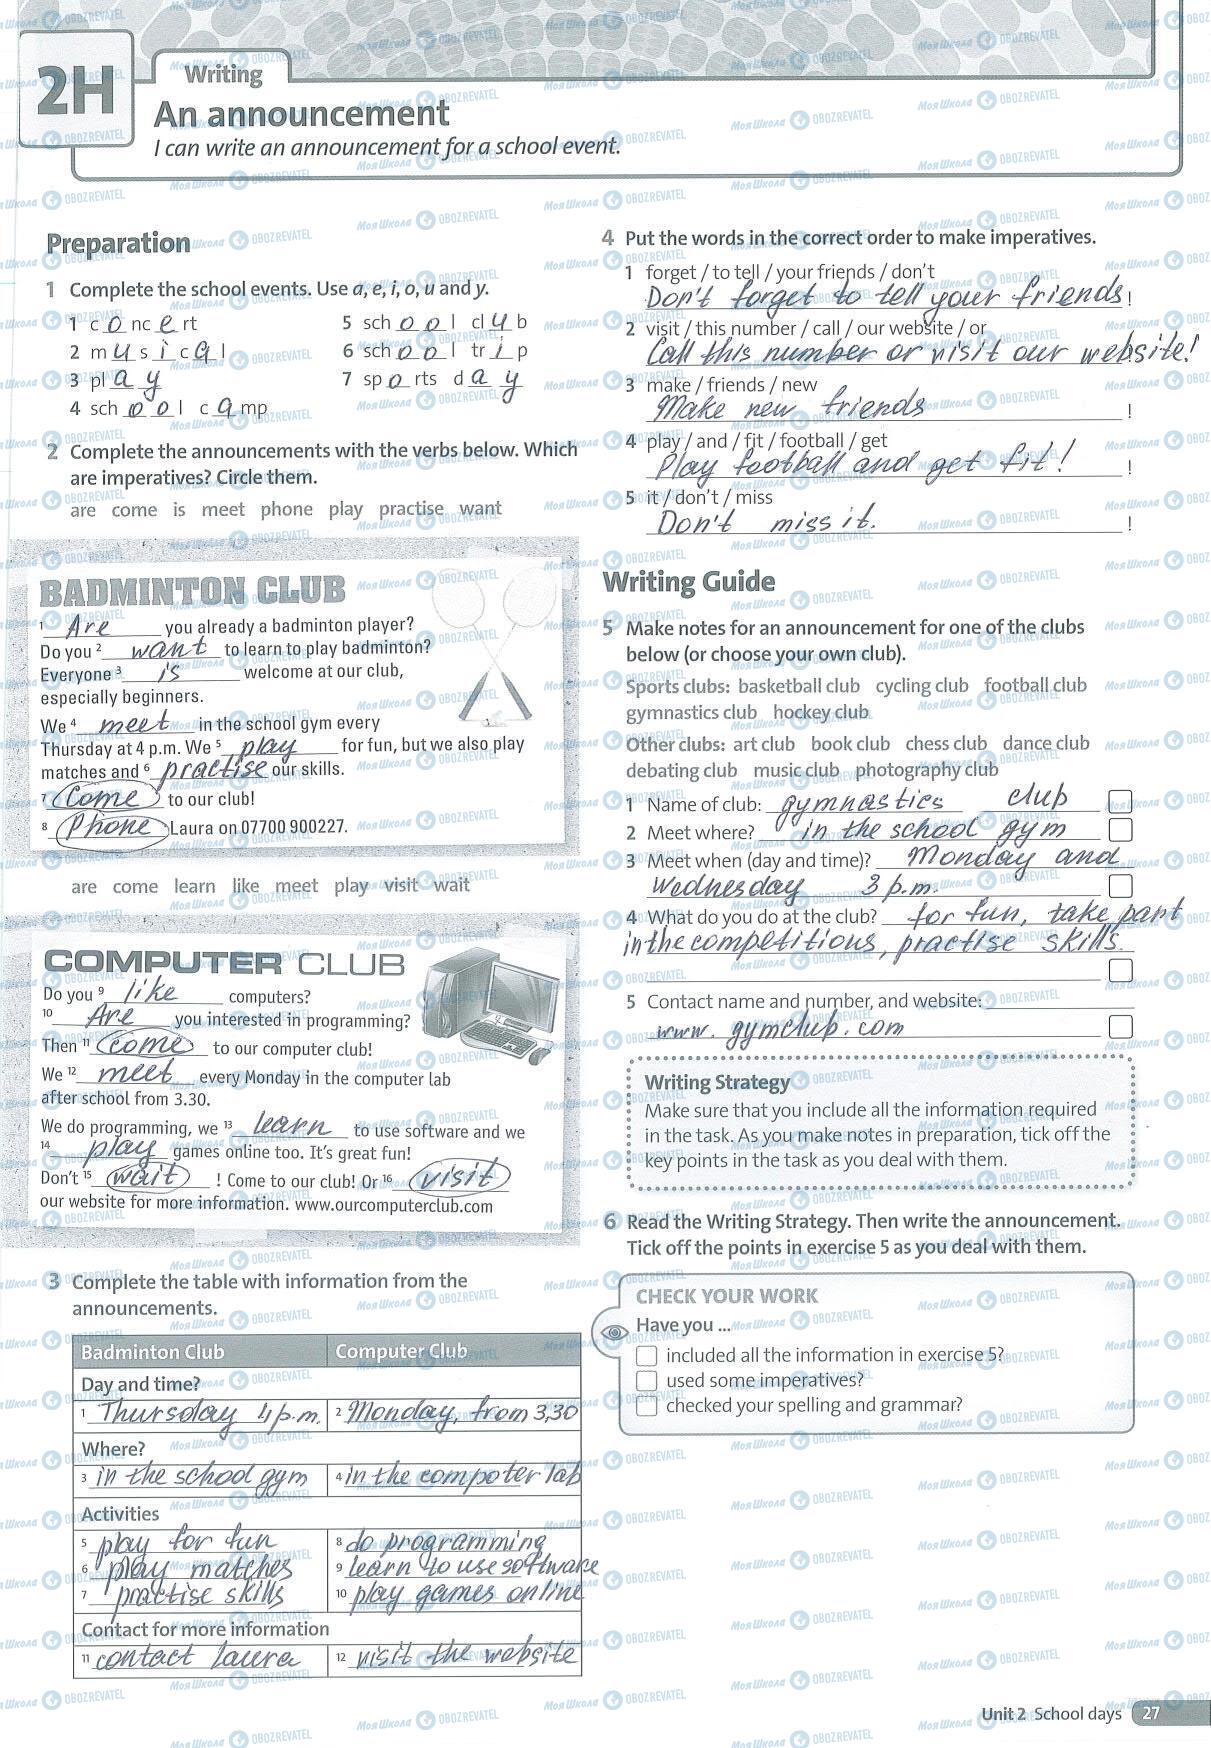 2H
Writing
An announcement
I can write an announcement for a school event.
Preparation
1 Complete the school events. Use a, e, i, o, u and y.
1 c o nc e rt
2 m u s i c a l
3 pl a y
4 sch o o l c a mp
5 sch o o l cl u b
6 sch o o l tr i p
7 sp o rts d a y
2 Complete the announcements with the verbs below. Which
are imperatives? Circle them.
are come is meet phone play practise want
BADMINTON CLUB
1 Are you already a badminton player?
Do you 2 want to learn to play badminton?
Everyone 3 is welcome at our club,
especially beginners.
We 4 meet in the school gym every
Thursday at 4 p.m. We 5 play for fun, but we also play
matches and 6 practise our skills.
7 Come to our club!
8 Phone Laura on 07700 900227.
are come learn like meet play visit wait
COMPUTER CLUB
Do you 9 like computers?
10 Are you interested in programming?
Then 11 come to our computer club!
We 12 meet every Monday in the computer lab
after school from 3.30.
We do programming, we 13 learn to use software and we
14 play games online too. It's great fun!
Don't 15 wait ! Come to our club! Or 16 visit
our website for more information. www.ourcomputerclub.com
3 Complete the table with information from the
announcements.
Badminton Club Computer Club
Day and time?
1 Thursday 4 p.m. 2 Monday, from 3,30
Where?
3 in the school gym 4 in the computer lab
Activities
5 play for fun 8 do programming
6 play matches 9 learn to use software
7 practise skills 10 play games online
Contact for more information
11 contact Laura 12 visit the website
4 Put the words in the correct order to make imperatives.
1 forget / to tell / your friends / don't
Don't forget to tell your friends !
2 visit / this number / call / our website / or
Call this number or visit our website!
3 make / friends / new
Make new friends !
4 play / and / fit / football / get
Play football and get fit! !
5 it / don't / miss
Don't miss it. !
Writing Guide
5 Make notes for an announcement for one of the clubs
below (or choose your own club).
Sports clubs: basketball club cycling club football club
gymnastics club hockey club
Other clubs: art club book club chess club dance club
debating club music club photography club
1 Name of club: gymnastics club
2 Meet where? in the school gym
3 Meet when (day and time)? Monday and
Wednesday 3 p.m.
4 What do you do at the club? for fun, take part
in the competitions, practise skills.
5 Contact name and number, and website:
www.gymclub.com
Writing Strategy
Make sure that you include all the information required
in the task. As you make notes in preparation, tick off the
key points in the task as you deal with them.
6 Read the Writing Strategy. Then write the announcement.
Tick off the points in exercise 5 as you deal with them.
CHECK YOUR WORK
Have you ...
included all the information in exercise 5?
used some imperatives?
checked your spelling and grammar?
Unit 2 School days 27
Моя Школа OBOZREVATEL